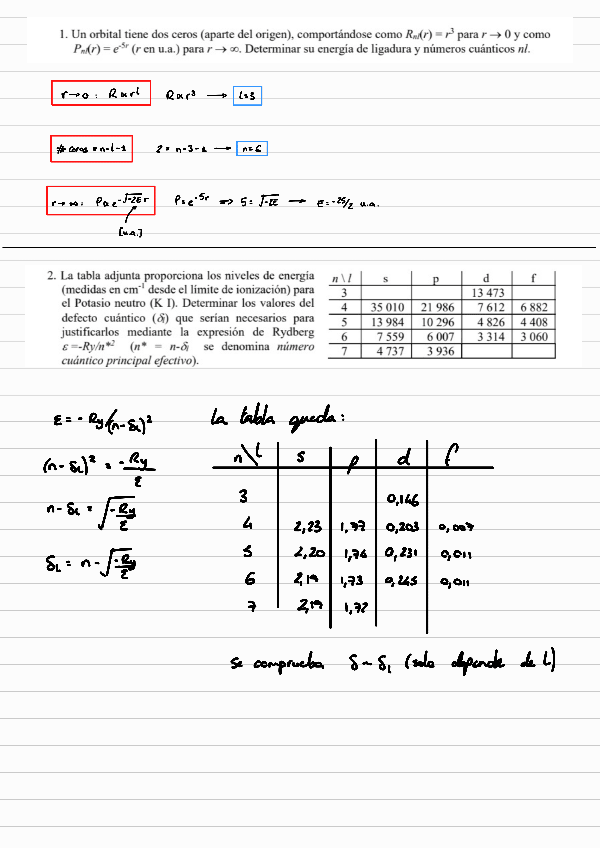 1. Un orbital tiene dos ceros (aparte del origen), comportándose como Rnl(r) = r³ para r → 0 y como
Pnl(r) = e^-5r (r en u.a.) para r → ∞. Determinar su energía de ligadura y números cuánticos nl.
r→0 : R α r^l R α r³ → l=3
# ceros = n-l-1 2 = n-3-1 → n=6
r→∞: P α e^-√-2E r P=e^-5r ⇒ 5=√-2E → E=-25/2 u.a.
[u.a.]
2. La tabla adjunta proporciona los niveles de energía
(medidas en cm⁻¹ desde el límite de ionización) para
el Potasio neutro (K I). Determinar los valores del
defecto cuántico (δl) que serían necesarios para
justificarlos mediante la expresión de Rydberg
ε =-Ry/n*² (n* = n-δl se denomina número
cuántico principal efectivo).
n \ l s p d f
3 13 473
4 35 010 21 986 7 612 6 882
5 13 984 10 296 4 826 4 408
6 7 559 6 007 3 314 3 060
7 4 737 3 936
ε = - Ry/(n-δl)²
(n-δl)² = -Ry/ε
n-δl = √-Ry/ε
δl = n-√-Ry/ε
La tabla queda:
n\l s p d f
3 0,146
4 2,23 1,77 0,203 0,007
5 2,20 1,74 0,231 0,011
6 2,19 1,73 0,245 0,011
7 2,19 1,72
se comprueba δ ~ δl (solo depende de l)